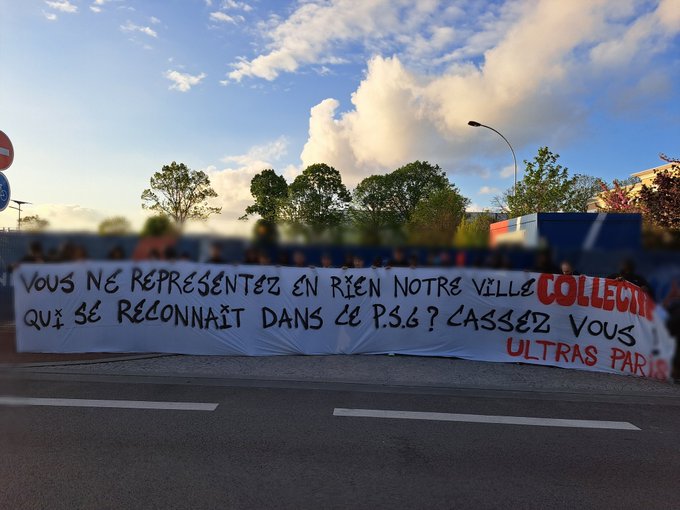 VOUS NE REPRÉSENTEZ EN RIEN NOTRE VILLE
QUI SE RECONNAÎT DANS CE P.S.G ? CASSEZ VOUS
COLLECTIF
ULTRAS PARIS